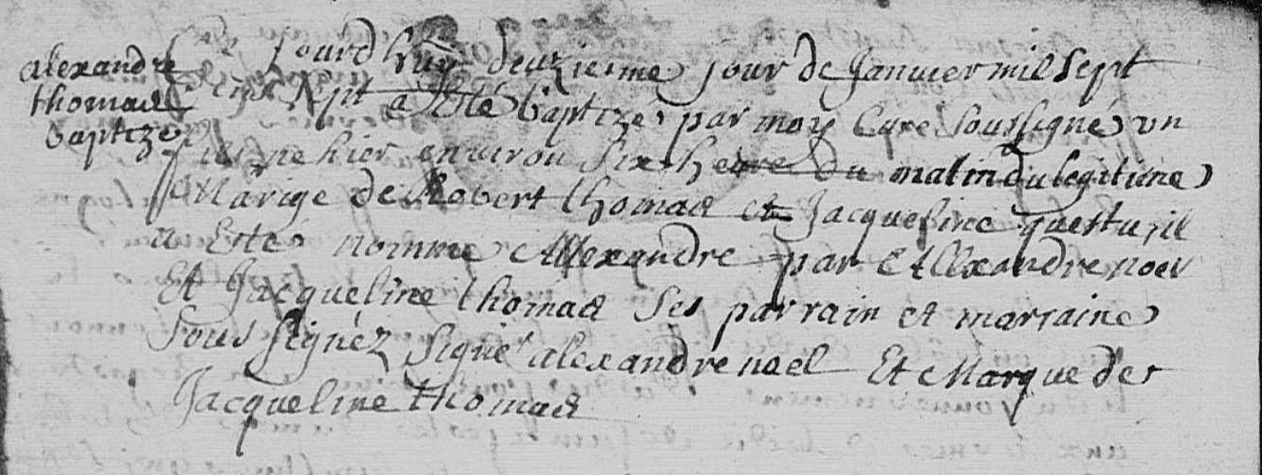 alexandre
thomas
baptizé
Jourdhuy deuzieme jour de Janvier mil sept
sept a Esté baptizé par moy Curé soussigné un
fils né hier environ six heure du matin du legitime
Marige de Robert thomas et Jacqueline quettu, il
a Esté nommé Allexandre par Allexandre noel
Et Jacqueline thomas ses parrain et marraine
soussignéz signé alexandre noel Et Marque de
Jacqueline thomas